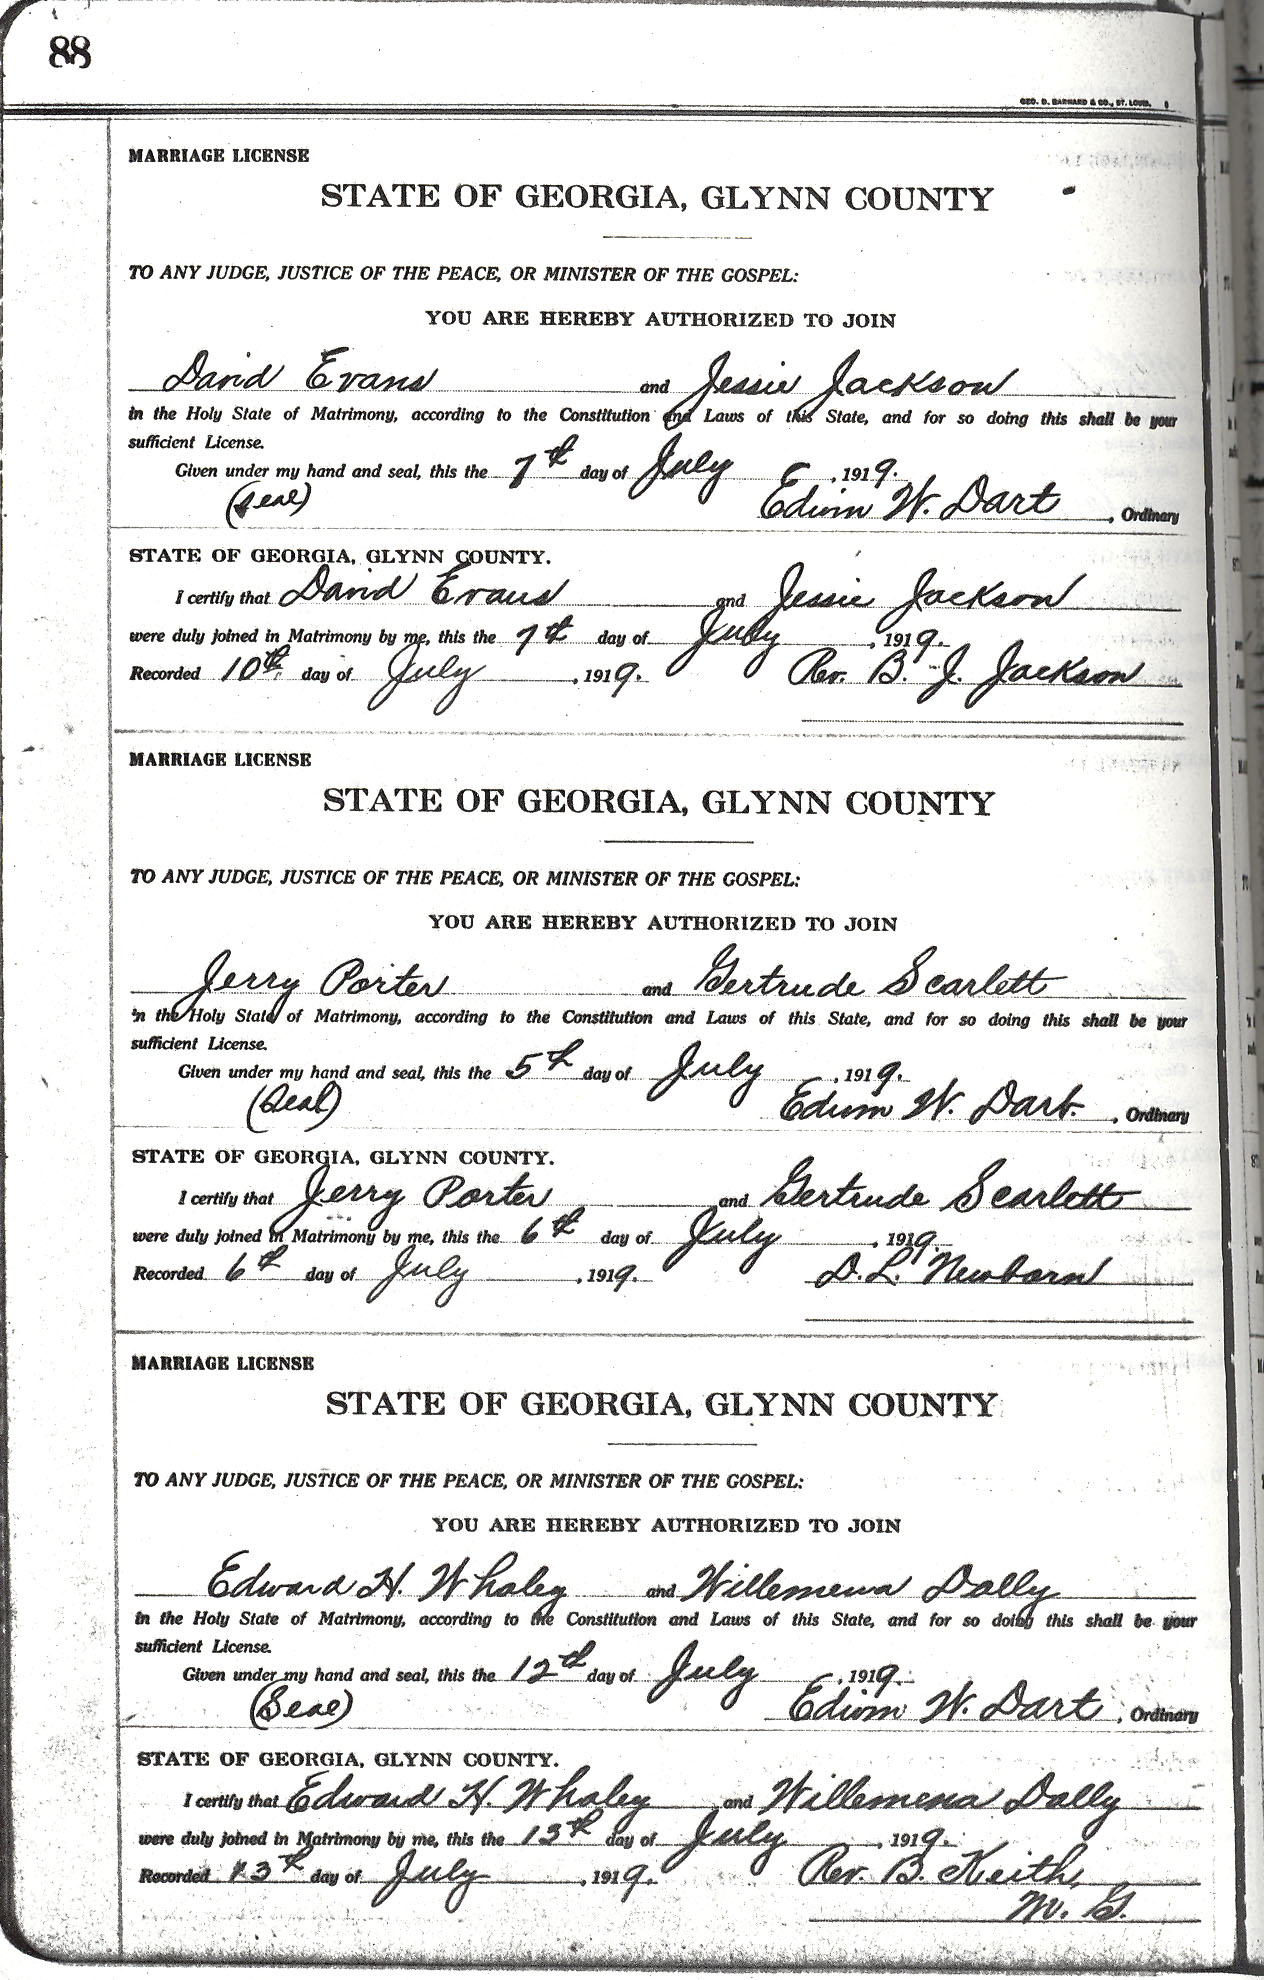 88
GEO. D. BARNARD & CO., ST. LOUIS.
MARRIAGE LICENSE
STATE OF GEORGIA, GLYNN COUNTY
TO ANY JUDGE, JUSTICE OF THE PEACE, OR MINISTER OF THE GOSPEL:
YOU ARE HEREBY AUTHORIZED TO JOIN
David Evans and Jessie Jackson
in the Holy State of Matrimony, according to the Constitution and Laws of this State, and for so doing this shall be your
sufficient License.
Given under my hand and seal, this the 7th day of July, 1919.
(Seal) Edwin W. Dart, Ordinary
STATE OF GEORGIA, GLYNN COUNTY.
I certify that David Evans and Jessie Jackson
were duly joined in Matrimony by me, this the 7th day of July, 1919.
Recorded 10th day of July, 1919. Rev. B. J. Jackson
MARRIAGE LICENSE
STATE OF GEORGIA, GLYNN COUNTY
TO ANY JUDGE, JUSTICE OF THE PEACE, OR MINISTER OF THE GOSPEL:
YOU ARE HEREBY AUTHORIZED TO JOIN
Jerry Porter and Gertrude Scarlett
in the Holy State of Matrimony, according to the Constitution and Laws of this State, and for so doing this shall be your
sufficient License.
Given under my hand and seal, this the 5th day of July, 1919.
(Seal) Edwin W. Dart., Ordinary
STATE OF GEORGIA, GLYNN COUNTY.
I certify that Jerry Porter and Gertrude Scarlett
were duly joined in Matrimony by me, this the 6th day of July, 1919.
Recorded 6th day of July, 1919. D. L. Newborn
MARRIAGE LICENSE
STATE OF GEORGIA, GLYNN COUNTY
TO ANY JUDGE, JUSTICE OF THE PEACE, OR MINISTER OF THE GOSPEL:
YOU ARE HEREBY AUTHORIZED TO JOIN
Edward H. Whaley and Willemena Dally
in the Holy State of Matrimony, according to the Constitution and Laws of this State, and for so doing this shall be your
sufficient License.
Given under my hand and seal, this the 12th day of July, 1919.
(Seal) Edwin W. Dart, Ordinary
STATE OF GEORGIA, GLYNN COUNTY.
I certify that Edward H. Whaley and Willemena Dally
were duly joined in Matrimony by me, this the 13th day of July, 1919.
Recorded 13th day of July, 1919. Rev. B. Keith,
M. G.